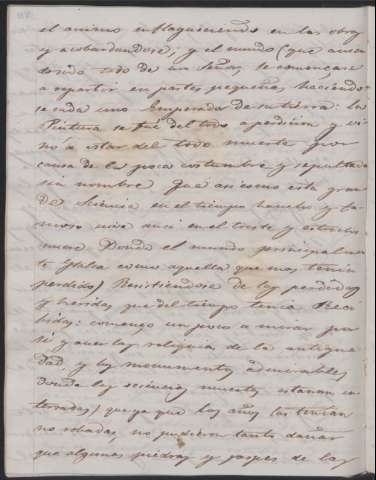 el animo enflaqueciendo en las obras
y acobardandose; y el mundo (que auia
sido todo de un Señor, se començase
a repartir en partes pequeñas, haciendo
se cada uno Emperador de su tierra: la
Pintura se fué del todo a perdicion y vi
no a estar del todo muerta por
causa de la poca costumbre y sepultada
sin nombre Que asi como esta gran
de Sciencia en el tiempo ancho y fa
moso vive asi en el triste y estrecho
muere Donde el mundo principalmen
te Italia como aquella que mas tenia
perdido) Resistiendose de las perdidas
y heridas que del tiempo tenia Reci
bidas: començo un poco a mirar por
si, y a ver las reliquias de la antigue
dad, y los monumentos admirables
Donde las sciencias muertas estavan en
terradas) que ya que los años las tenian
no robadas, no pudieron tanto dañar
que algunas piedras y jaspes de las